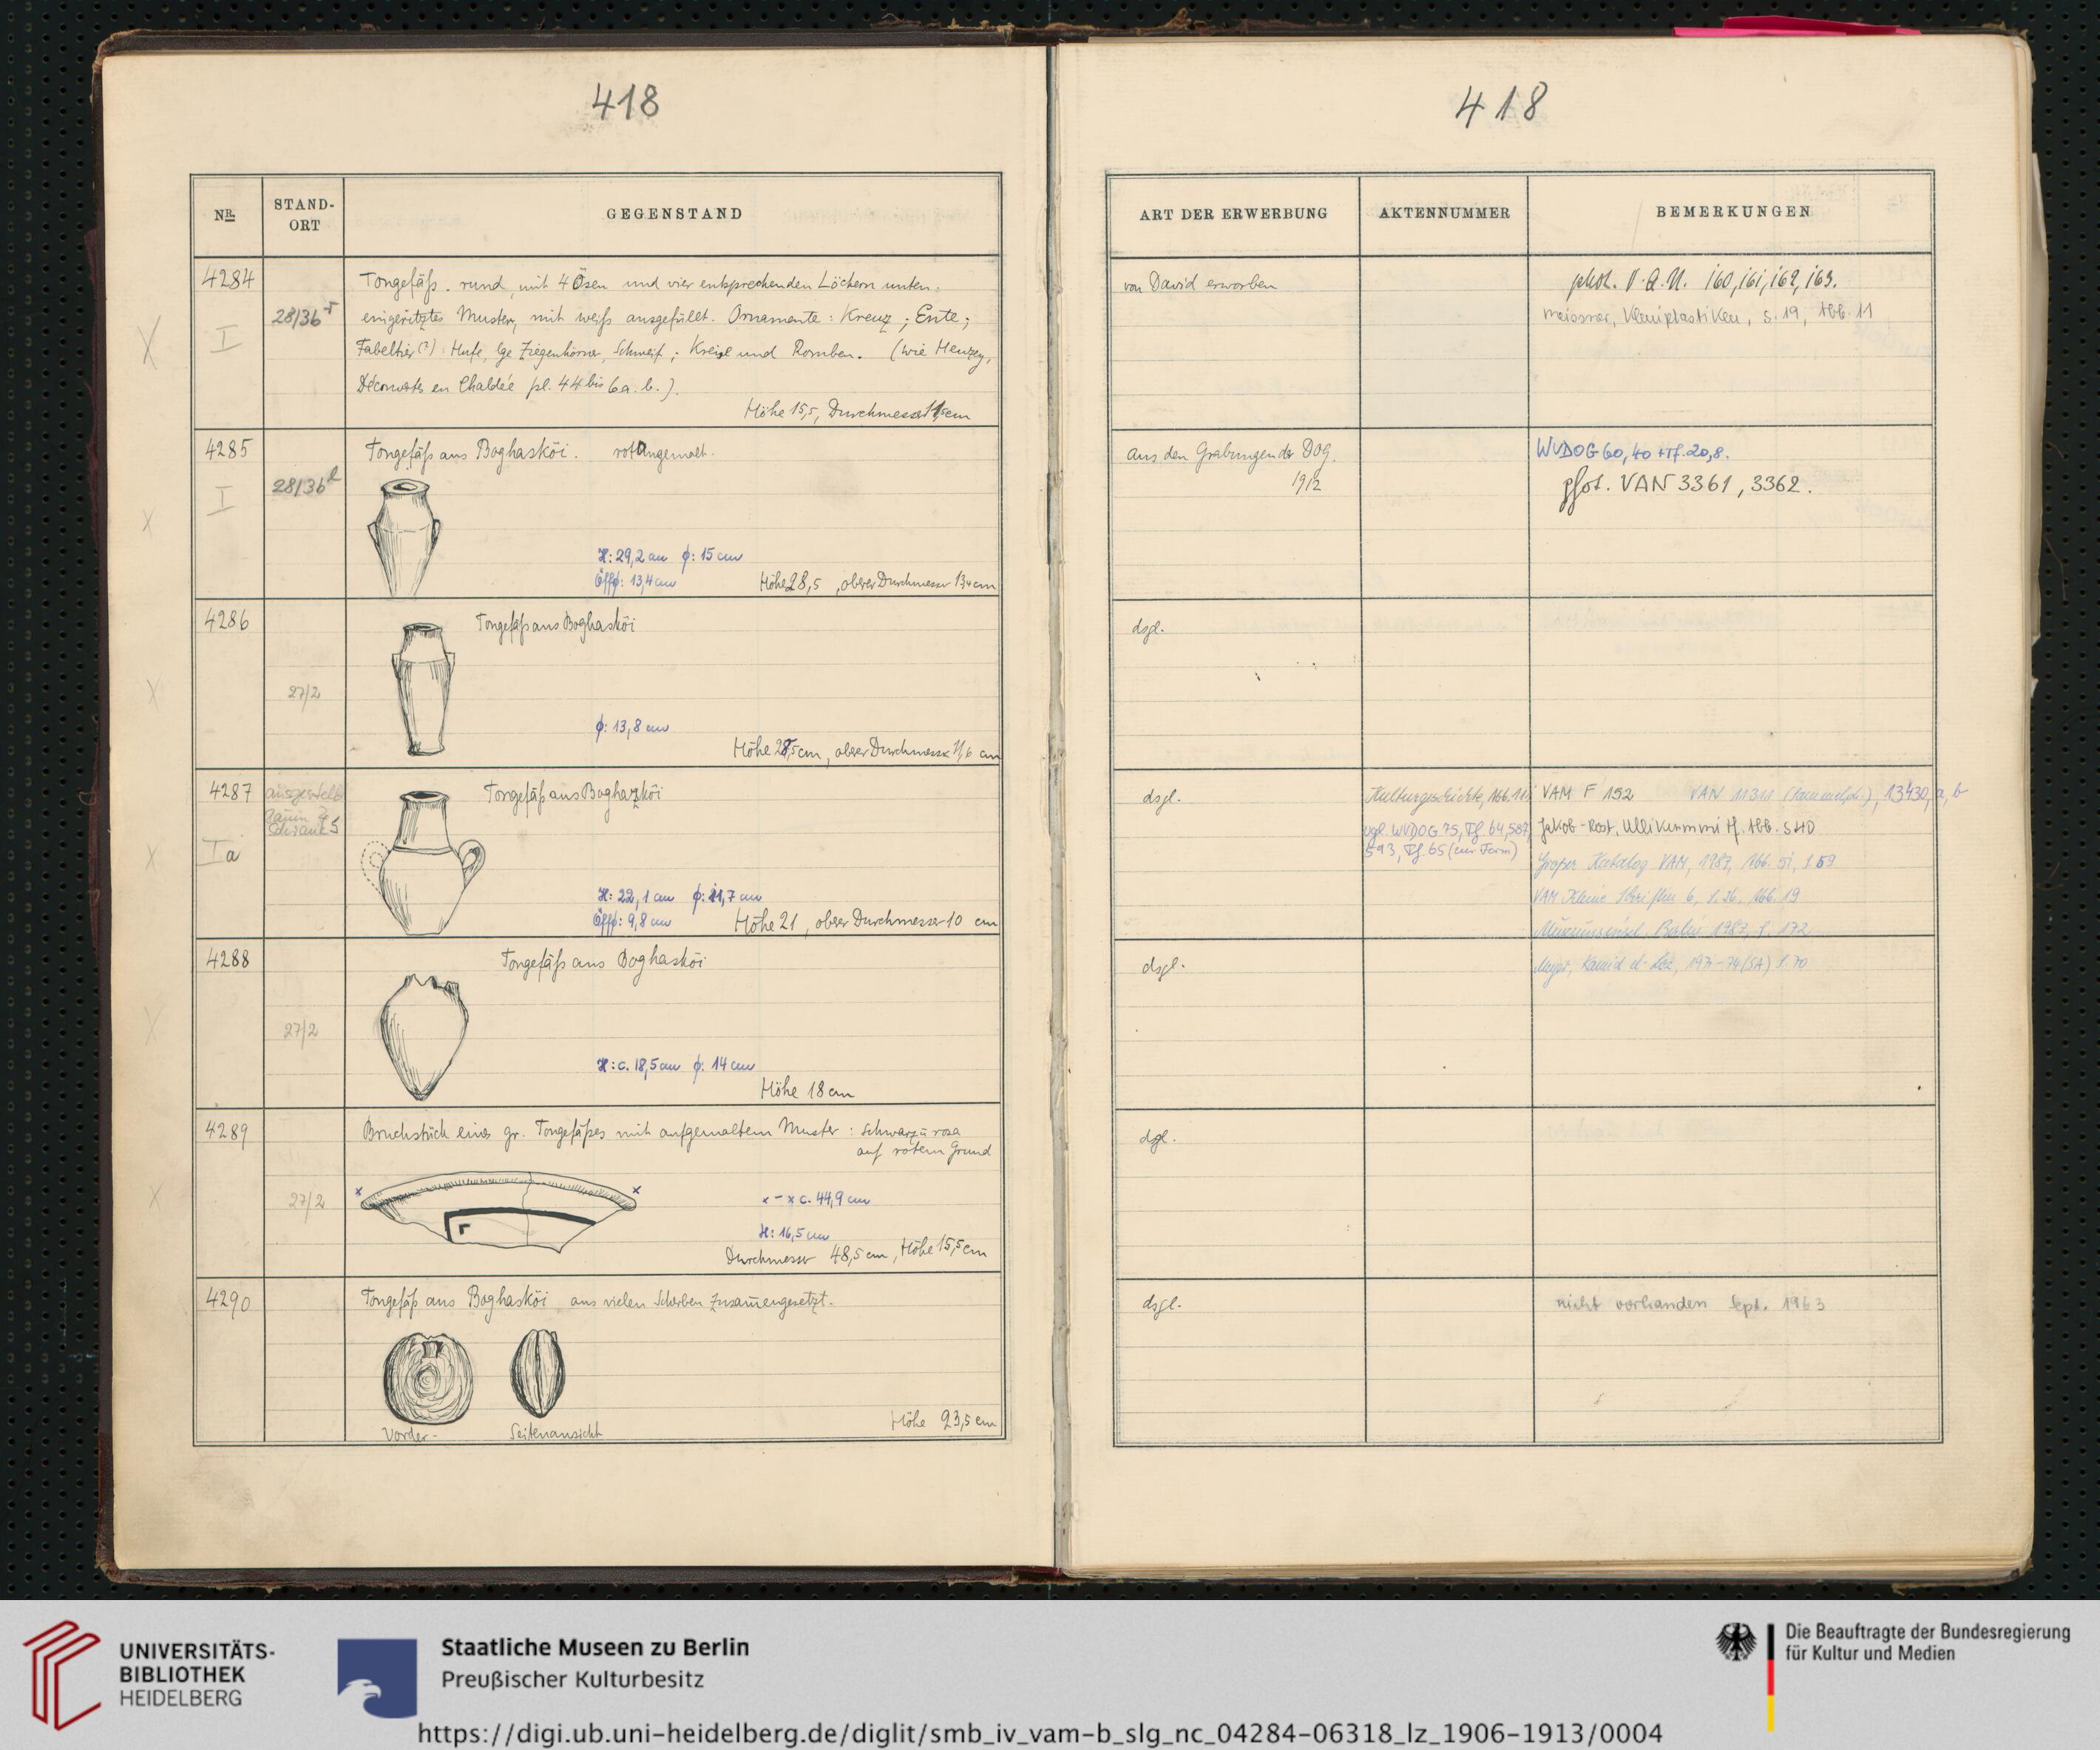 418
NR.
STAND-
ORT
GEGENSTAND
4284
I
28/36
Tongefäß. rund, mit 4 Ösen und vier entsprechenden Löchern unten.
eingeritztes Muster, mit weiß ausgefüllt. Ornamente: Kreuz; Ente;
Fabeltier(?): Hufe, lge Ziegenhörner, Schweif; Kreise und Romben. (wie Heuzey,
Découvertes en Chaldée pl. 44 bis 6a. b.).
Höhe 15,5, Durchmesser cm
4285
I
28/36
Tongefäß aus Boghasköi. rot angemalt.
H: 29,2 cm ϕ: 15 cm
Öffϕ: 13,4 cm
Höhe 28,5, oberer Durchmesser 13,4 cm
4286
27/2
Tongefäß aus Boghasköi
ϕ: 13,8 cm
Höhe cm, oberer Durchmesser 11,6 cm
4287
Ia
ausgestellt
Raum
Schrank 5
Tongefäß aus Boghazköi
H: 22,1 cm ϕ: 11,7 cm
Öffϕ: 9,8 cm
Höhe 21, oberer Durchmesser 10 cm
4288
27/2
Tongefäß aus Boghasköi
H: c. 18,5 cm ϕ: 14 cm
Höhe 18 cm
4289
27/2
Bruchstück eines gr. Tongefäßes mit aufgemaltem Muster: schwarz u rosa
auf rotem Grund
x x
x - x c. 44,9 cm
H: 16,5 cm
Durchmesser 48,5 cm, Höhe 15,5 cm
4290
Tongefäß aus Boghasköi aus vielen Scherben zusam̄engesetzt.
Vorder- Seitenansicht
Höhe 23,5 cm
418
ART DER ERWERBUNG
AKTENNUMMER
BEMERKUNGEN
von David erworben
phot. V.A.N. 160, 161, 162, 163.
Meissner, Kleinplastiken, S. 19, Abb. 11
Aus den Grabungen der DOG.
1912
WVDOG 60, 40 + Tf. 20,8.
phot. VAN 3361, 3362.
dsgl.
dsgl.
Kulturgeschichte, Abb.
vgl. WVDOG 75, Tf. 64, 587
593, Tf. 65 (zur Form)
VAM F 152 VAN 11311 (Sammelph.), 13430, a, b
Jakob-Rost, Ullikummi Abb. S 40
Großer Katalog VAM, 1987, Abb. 51, S. 59
VAM Kleine Schriften 6, S. 26, Abb. 19
Museumsinsel Berlin 1987, S. 172
dsgl.
Kamid el-Loz, S. 70
dgl.
dsgl.
nicht vorhanden Sept. 1963
UNIVERSITÄTS-
BIBLIOTHEK
HEIDELBERG
Staatliche Museen zu Berlin
Preußischer Kulturbesitz
Die Beauftragte der Bundesregierung
für Kultur und Medien
https://digi.ub.uni-heidelberg.de/diglit/smb_iv_vam-b_slg_nc_04284-06318_lz_1906-1913/0004